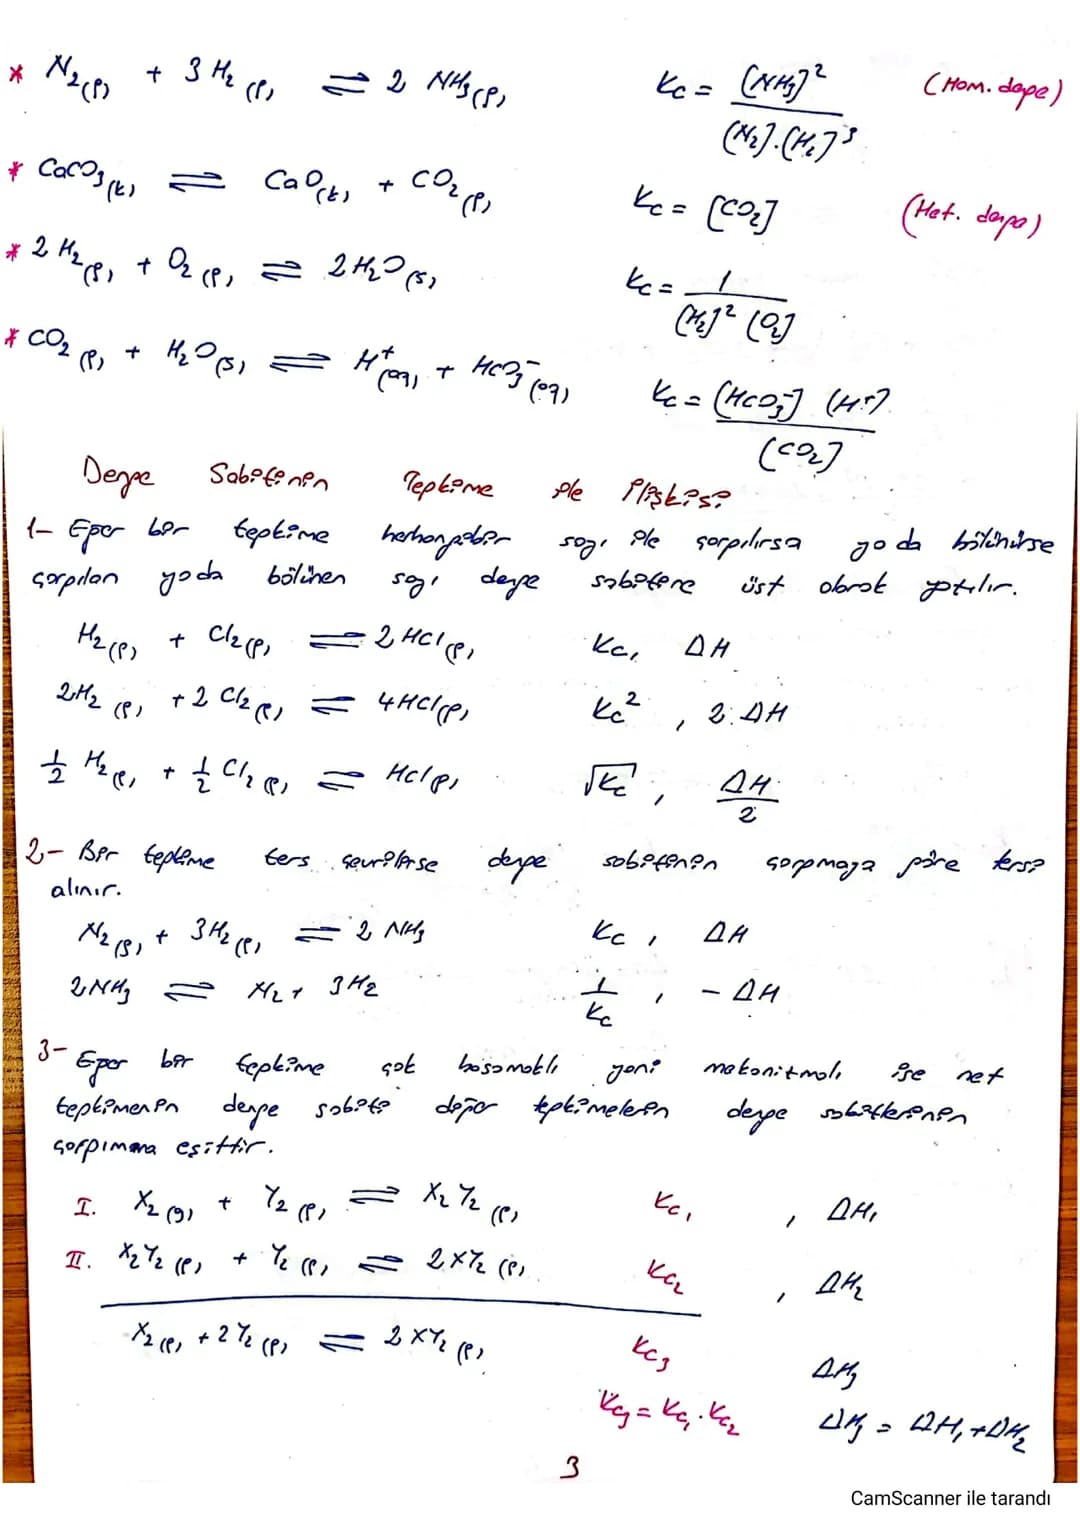 * N2(g) + 3 H2(g) ⇌ 2 NH3(g) Kc = [NH3]² / [N2].[H2]³ (Hom. denge)
* CaCO3(k) ⇌ CaO(k) + CO2(g) Kc = [CO2] (Het. denge)
* 2 H2(g) + O2(g) ⇌ 2H2O(s) Kc = 1 / [H2]² [O2]
* CO2(g) + H2O(s) ⇌ H⁺(aq) + HCO3⁻(aq) Kc = [HCO3⁻] [H⁺] / [CO2]
Denge Sabitinin Tepkime ile İlişkisi
1- Eger bir tepkime herhangibir sayı ile çarpılırsa ya da bölünürse
çarpılan ya da bölünen sayı denge sabitine üst olarak yazılır.
H2(g) + Cl2(g) ⇌ 2 HCl(g) Kc, ΔH
2H2(g) + 2 Cl2(g) ⇌ 4HCl(g) Kc², 2.ΔH
1/2 H2(g) + 1/2 Cl2(g) ⇌ HCl(g) √Kc, ΔH/2
2- Bir tepkime ters çevrilirse denge sabitinin çarpmaya göre tersi
alınır.
N2(g) + 3H2(g) ⇌ 2 NH3 Kc, ΔH
2NH3 ⇌ N2 + 3H2 1/Kc, - ΔH
3- Eger bir tepkime çok basamaklı yani mekanizmalı ise net
tepkimenin denge sabiti diğer tepkimelerin denge sabitlerinin
çarpımına eşittir.
I. X2(g) + Y2(g) ⇌ X2Y2(g) Kc1, ΔH1
II. X2Y2(g) + Y2(g) ⇌ 2XY2(g) Kc2, ΔH2
X2(g) + 2Y2(g) ⇌ 2XY2(g) Kc3 ΔH3
Kc3 = Kc1 . Kc2 ΔH3 = ΔH1 + ΔH2
3
CamScanner ile tarandı